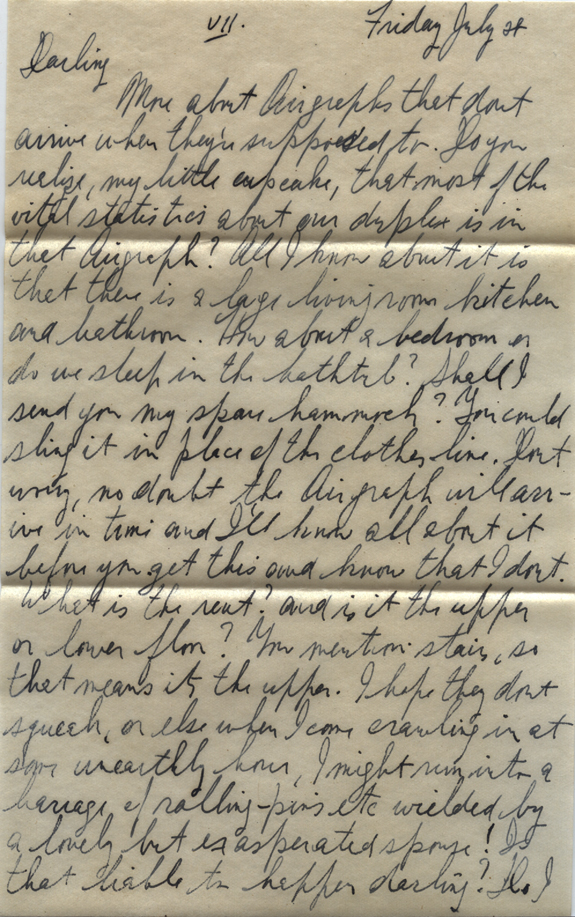 VII. Friday July 28
Darling
More about Airgraphs that dont
arrive when they're supposed to. Do you
realize, my little cupcake, that most of the
vital statistics about our duplex is in
that Airgraph? All I know about it is
that there is a large livingroom kitchen
and bathroom. How about a bedroom or
do we sleep in the bathtub? Shall I
send you my spare hammock? You could
sling it in place of the clothes line. Dont
worry, no doubt the Airgraph will arr-
ive in time and I'll know all about it
before you get this and know that I dont.
What is the rent? and is it the upper
or lower floor? You mention stairs, so
that means its the upper. I hope they dont
squeak, or else when I come crawling in at
some unearthly hour, I might run into a
barrage of rolling-pins etc wielded by
a lovely but exasperated spouse! Is
that liable to happen darling? Do I